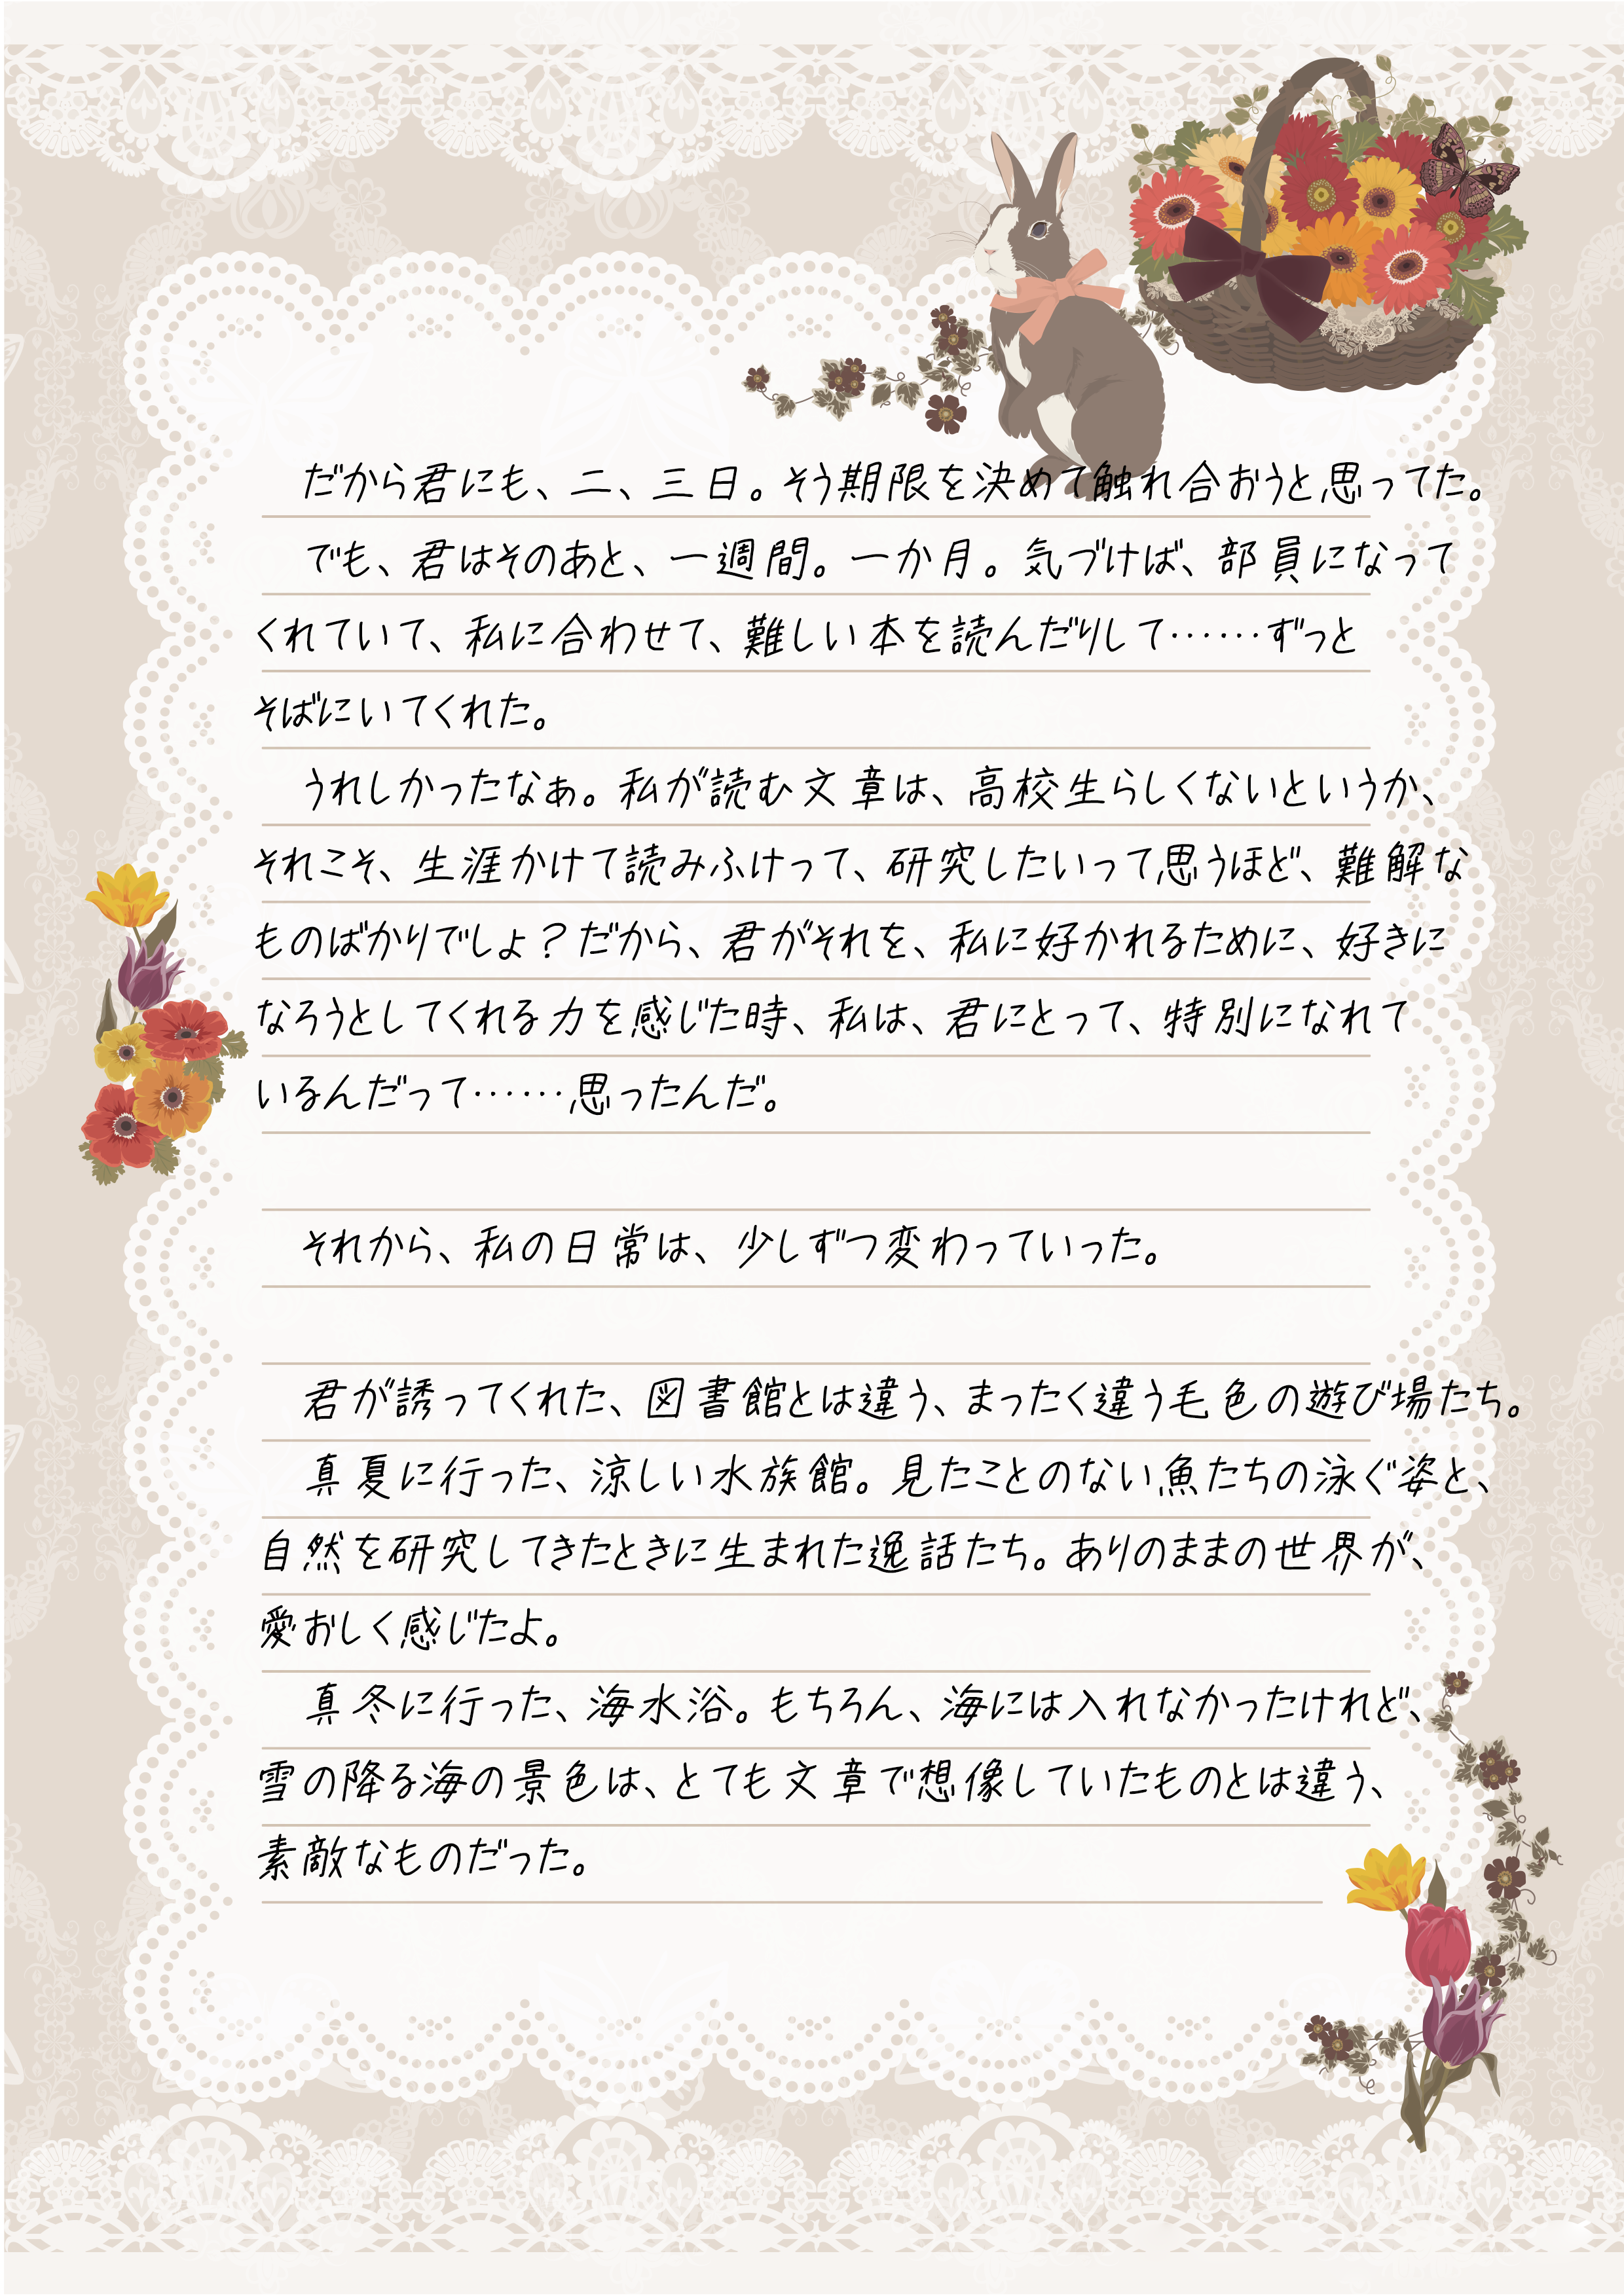 だから君にも、二、三日。そう期限を決めて触れ合おうと思ってた。
でも、君はそのあと、一週間。一か月。気づけば、部員になって
くれていて、私に合わせて、難しい本を読んだりして……ずっと
そばにいてくれた。
うれしかったなぁ。私が読む文章は、高校生らしくないというか、
それこそ、生涯かけて読みふけって、研究したいって思うほど、難解な
ものばかりでしょ？だから、君がそれを、私に好かれるために、好きに
なろうとしてくれる力を感じた時、私は、君にとって、特別になれて
いるんだって……思ったんだ。
それから、私の日常は、少しずつ変わっていった。
君が誘ってくれた、図書館とは違う、まったく違う毛色の遊び場たち。
真夏に行った、涼しい水族館。見たことのない魚たちの泳ぐ姿と、
自然を研究してきたときに生まれた逸話たち。ありのままの世界が、
愛おしく感じたよ。
真冬に行った、海水浴。もちろん、海には入れなかったけれど、
雪の降る海の景色は、とても文章で想像していたものとは違う、
素敵なものだった。